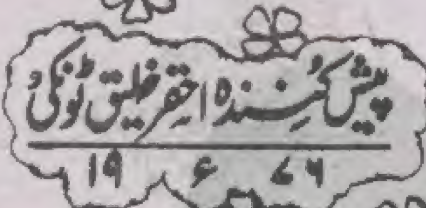 پیش کُنِندہ احقر خلیق ٹونکیؔ
۱۹ ۶ ۷۶